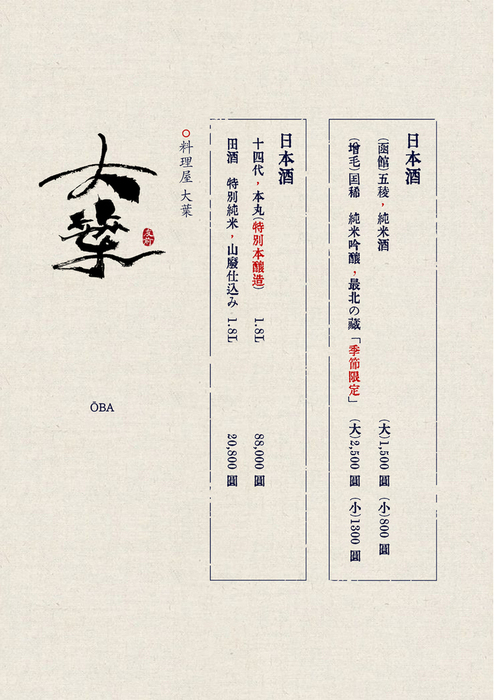 日本酒
(函館)五稜，純米酒 (大)1,500 圓 (小)800 圓
(增毛)国稀 純米吟釀，最北の蔵「季節限定」 (大)2,500 圓 (小)1300 圓
日本酒
十四代，本丸(特別本釀造) 1.8L 88,000 圓
田酒 特別純米，山廢仕込み 1.8L 20,800 圓
料理屋 大葉
大葉
ŌBA